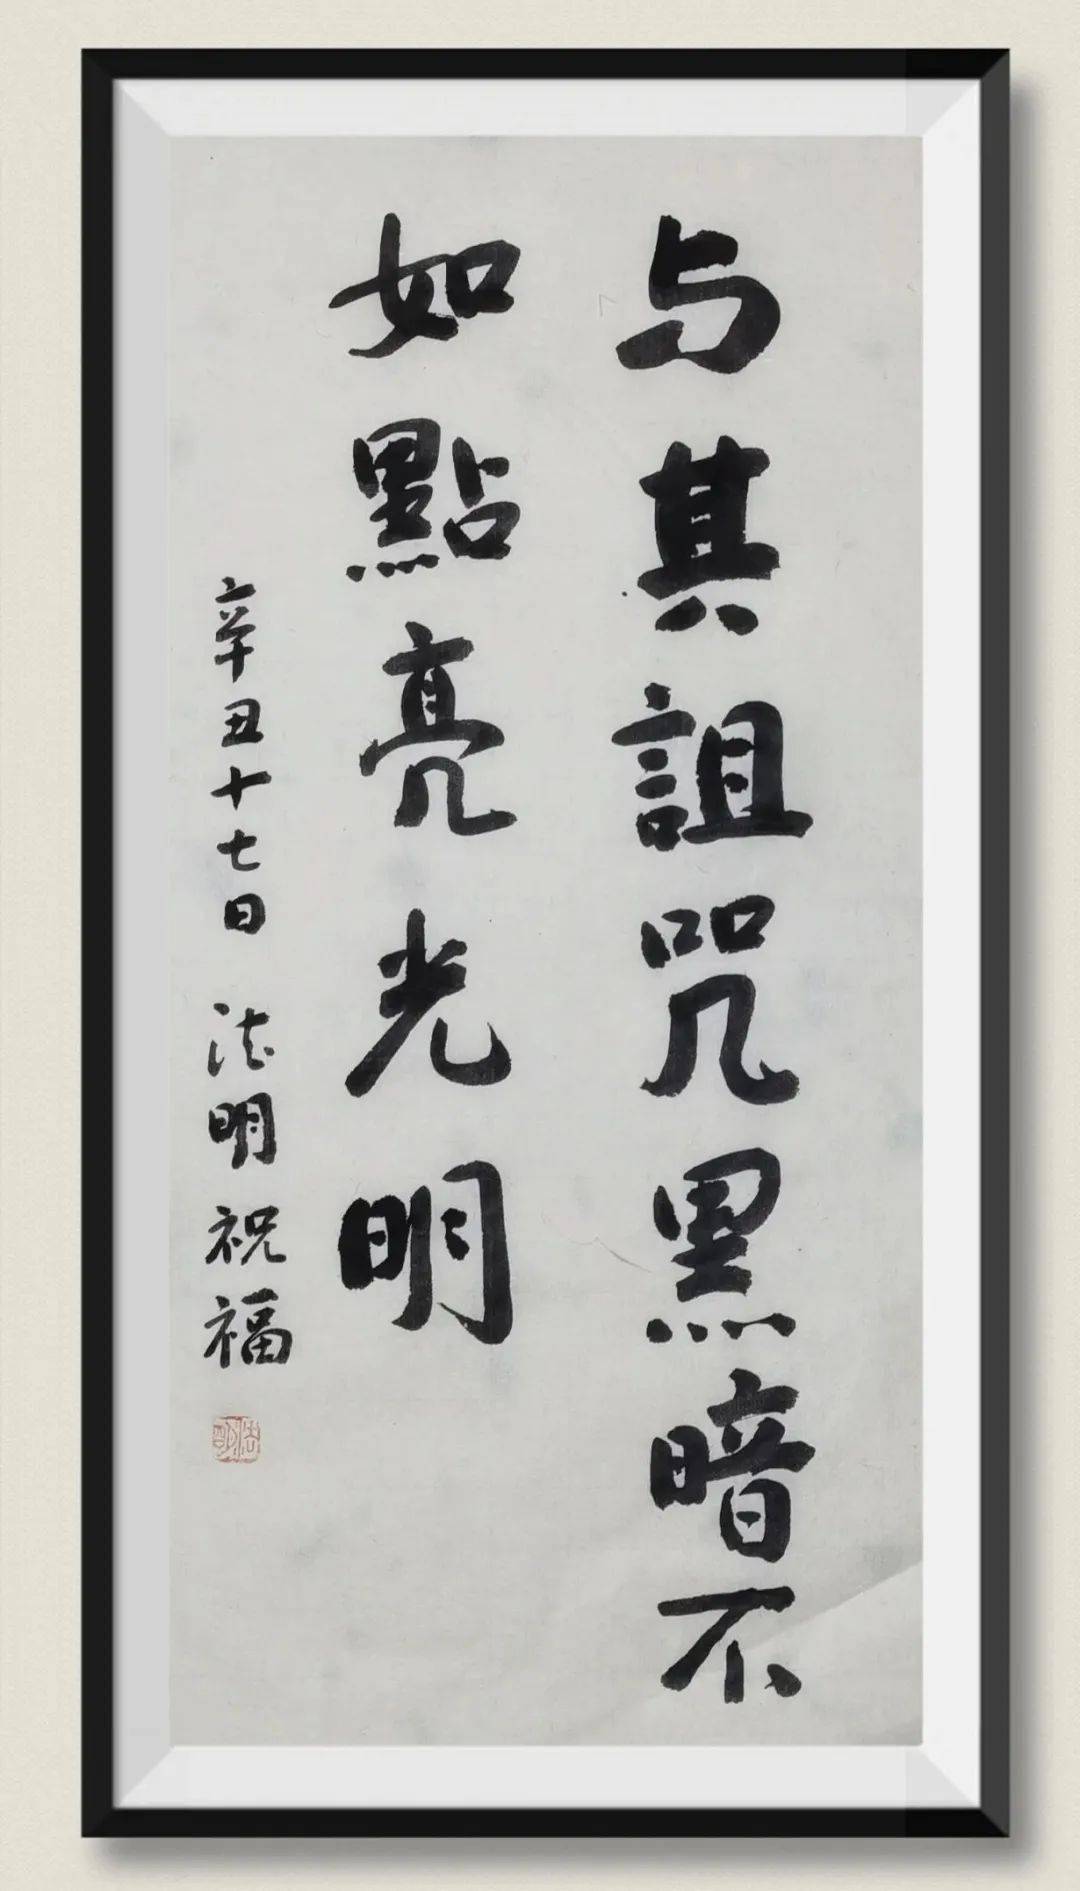 与其詛咒黑暗不
如點亮光明
辛丑十七日 法明祝福
法明